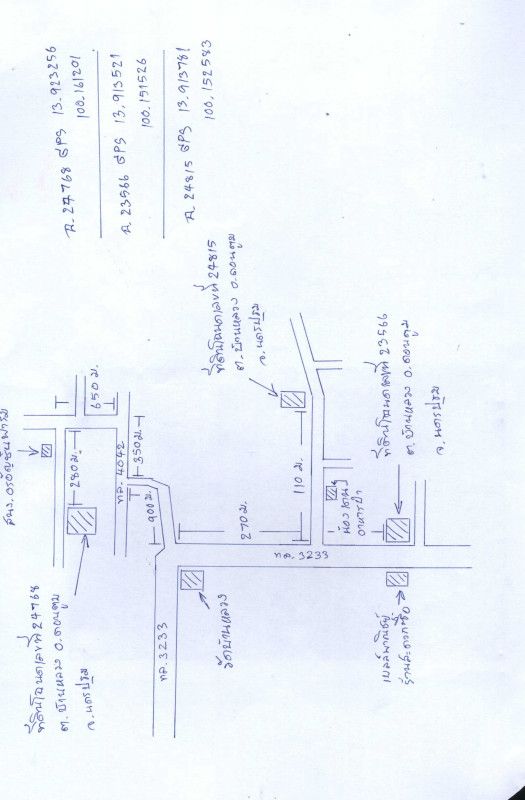 ฉ. 24768 GPS 13.923256
100.161201
ฉ 23566 GPS 13,913521
100.151526
ฉ. 24815 GPS 13.913781
100.152583
ที่ดินโฉนดเลขที่ 24768
ต.บ้านหลวง อ.ดอนตูม
จ.นครปฐม
280 ม.
650 ม.
ทล. 4042
350 ม.
900 ม.
ทล.3233
วัดบ้านหลวง
270 ม.
ทล. 3233
ที่ดินโฉนดเลขที่ 24815
ต.บ้านหลวง อ.ดอนตูม
จ.นครปฐม
110 ม.
อาหารป่า
ที่ดินโฉนดเลขที่ 23566
ต.บ้านหลวง อ.ดอนตูม
จ.นครปฐม
ร้านสะดวกซื้อ